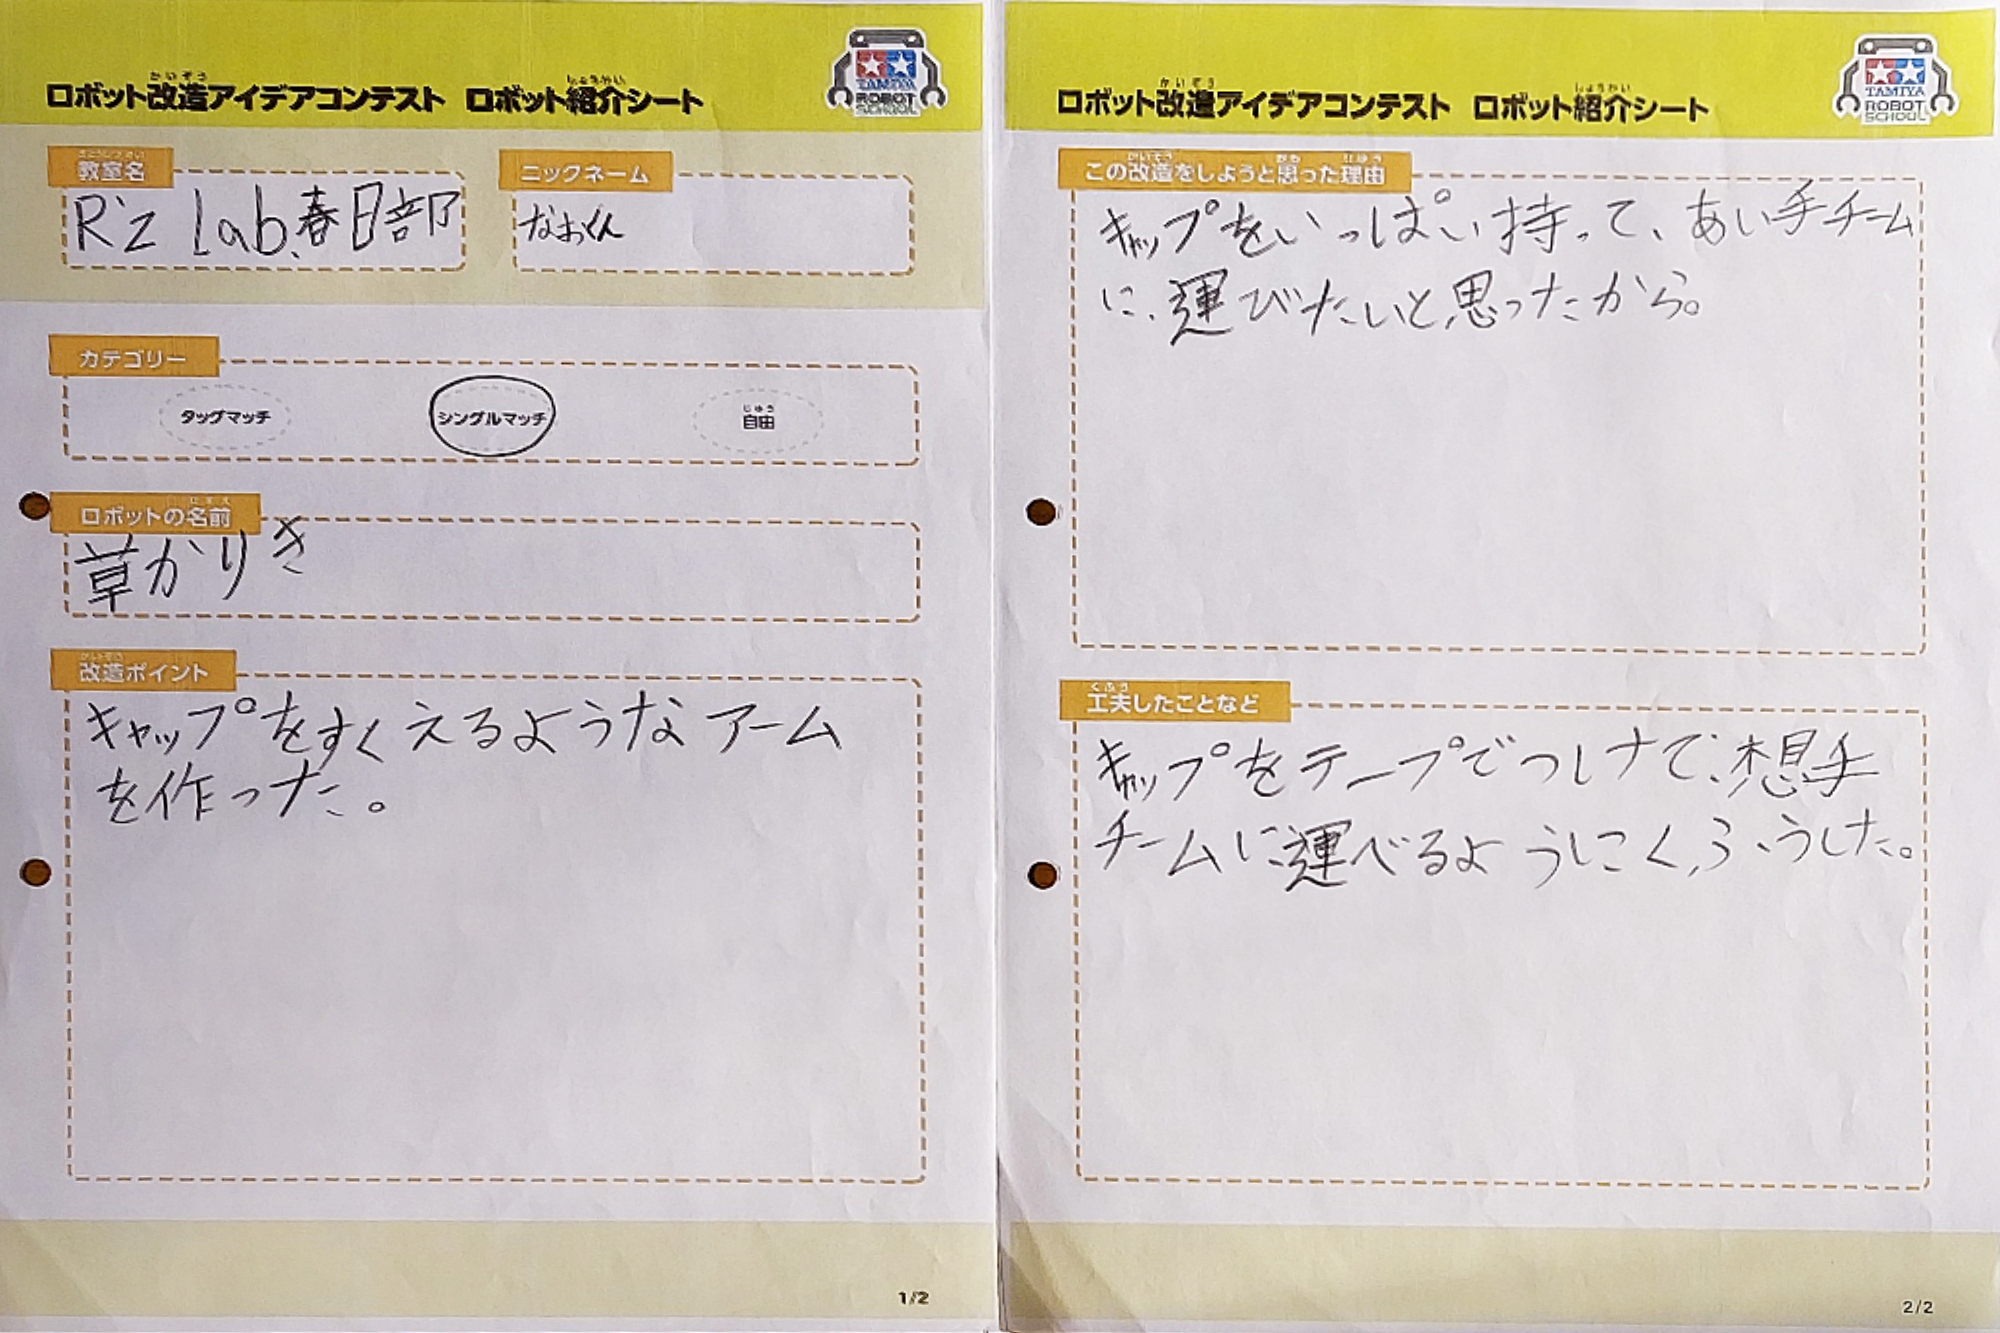 ロボット改造アイデアコンテスト ロボット紹介シート
TAMIYA
ROBOT
SCHOOL
教室名
R'z Lab.春日部
ニックネーム
なおくん
カテゴリー
タッグマッチ
シングルマッチ
自由
ロボットの名前
草かりき
改造ポイント
キャップをすくえるようなアーム
を作った。
1/2
ロボット改造アイデアコンテスト ロボット紹介シート
TAMIYA
ROBOT
SCHOOL
この改造をしようと思った理由
キャップをいっぱい持って、あい手チーム
に、運びたいと思ったから。
工夫したことなど
キャップをテープでつけて、想手
チームに運べるようにくふうした。
2/2